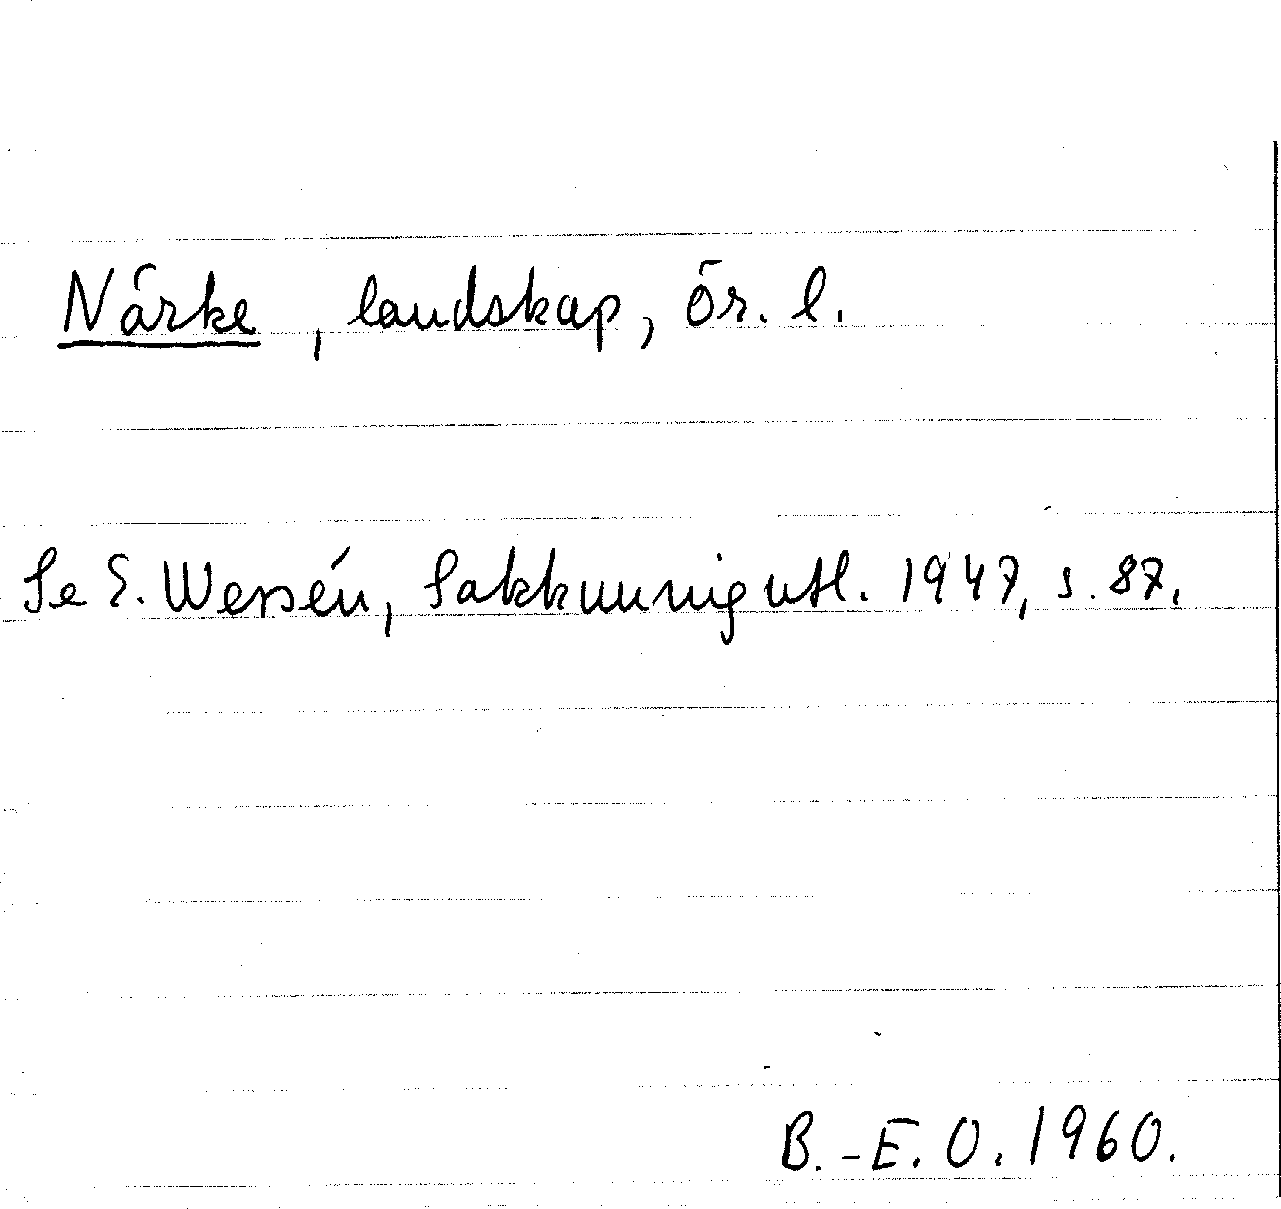 Närke, landskap, Ör. l.
Se E. Wessén, Sakkunnigutl. 1947, s. 87.
B.-E. O. 1960.